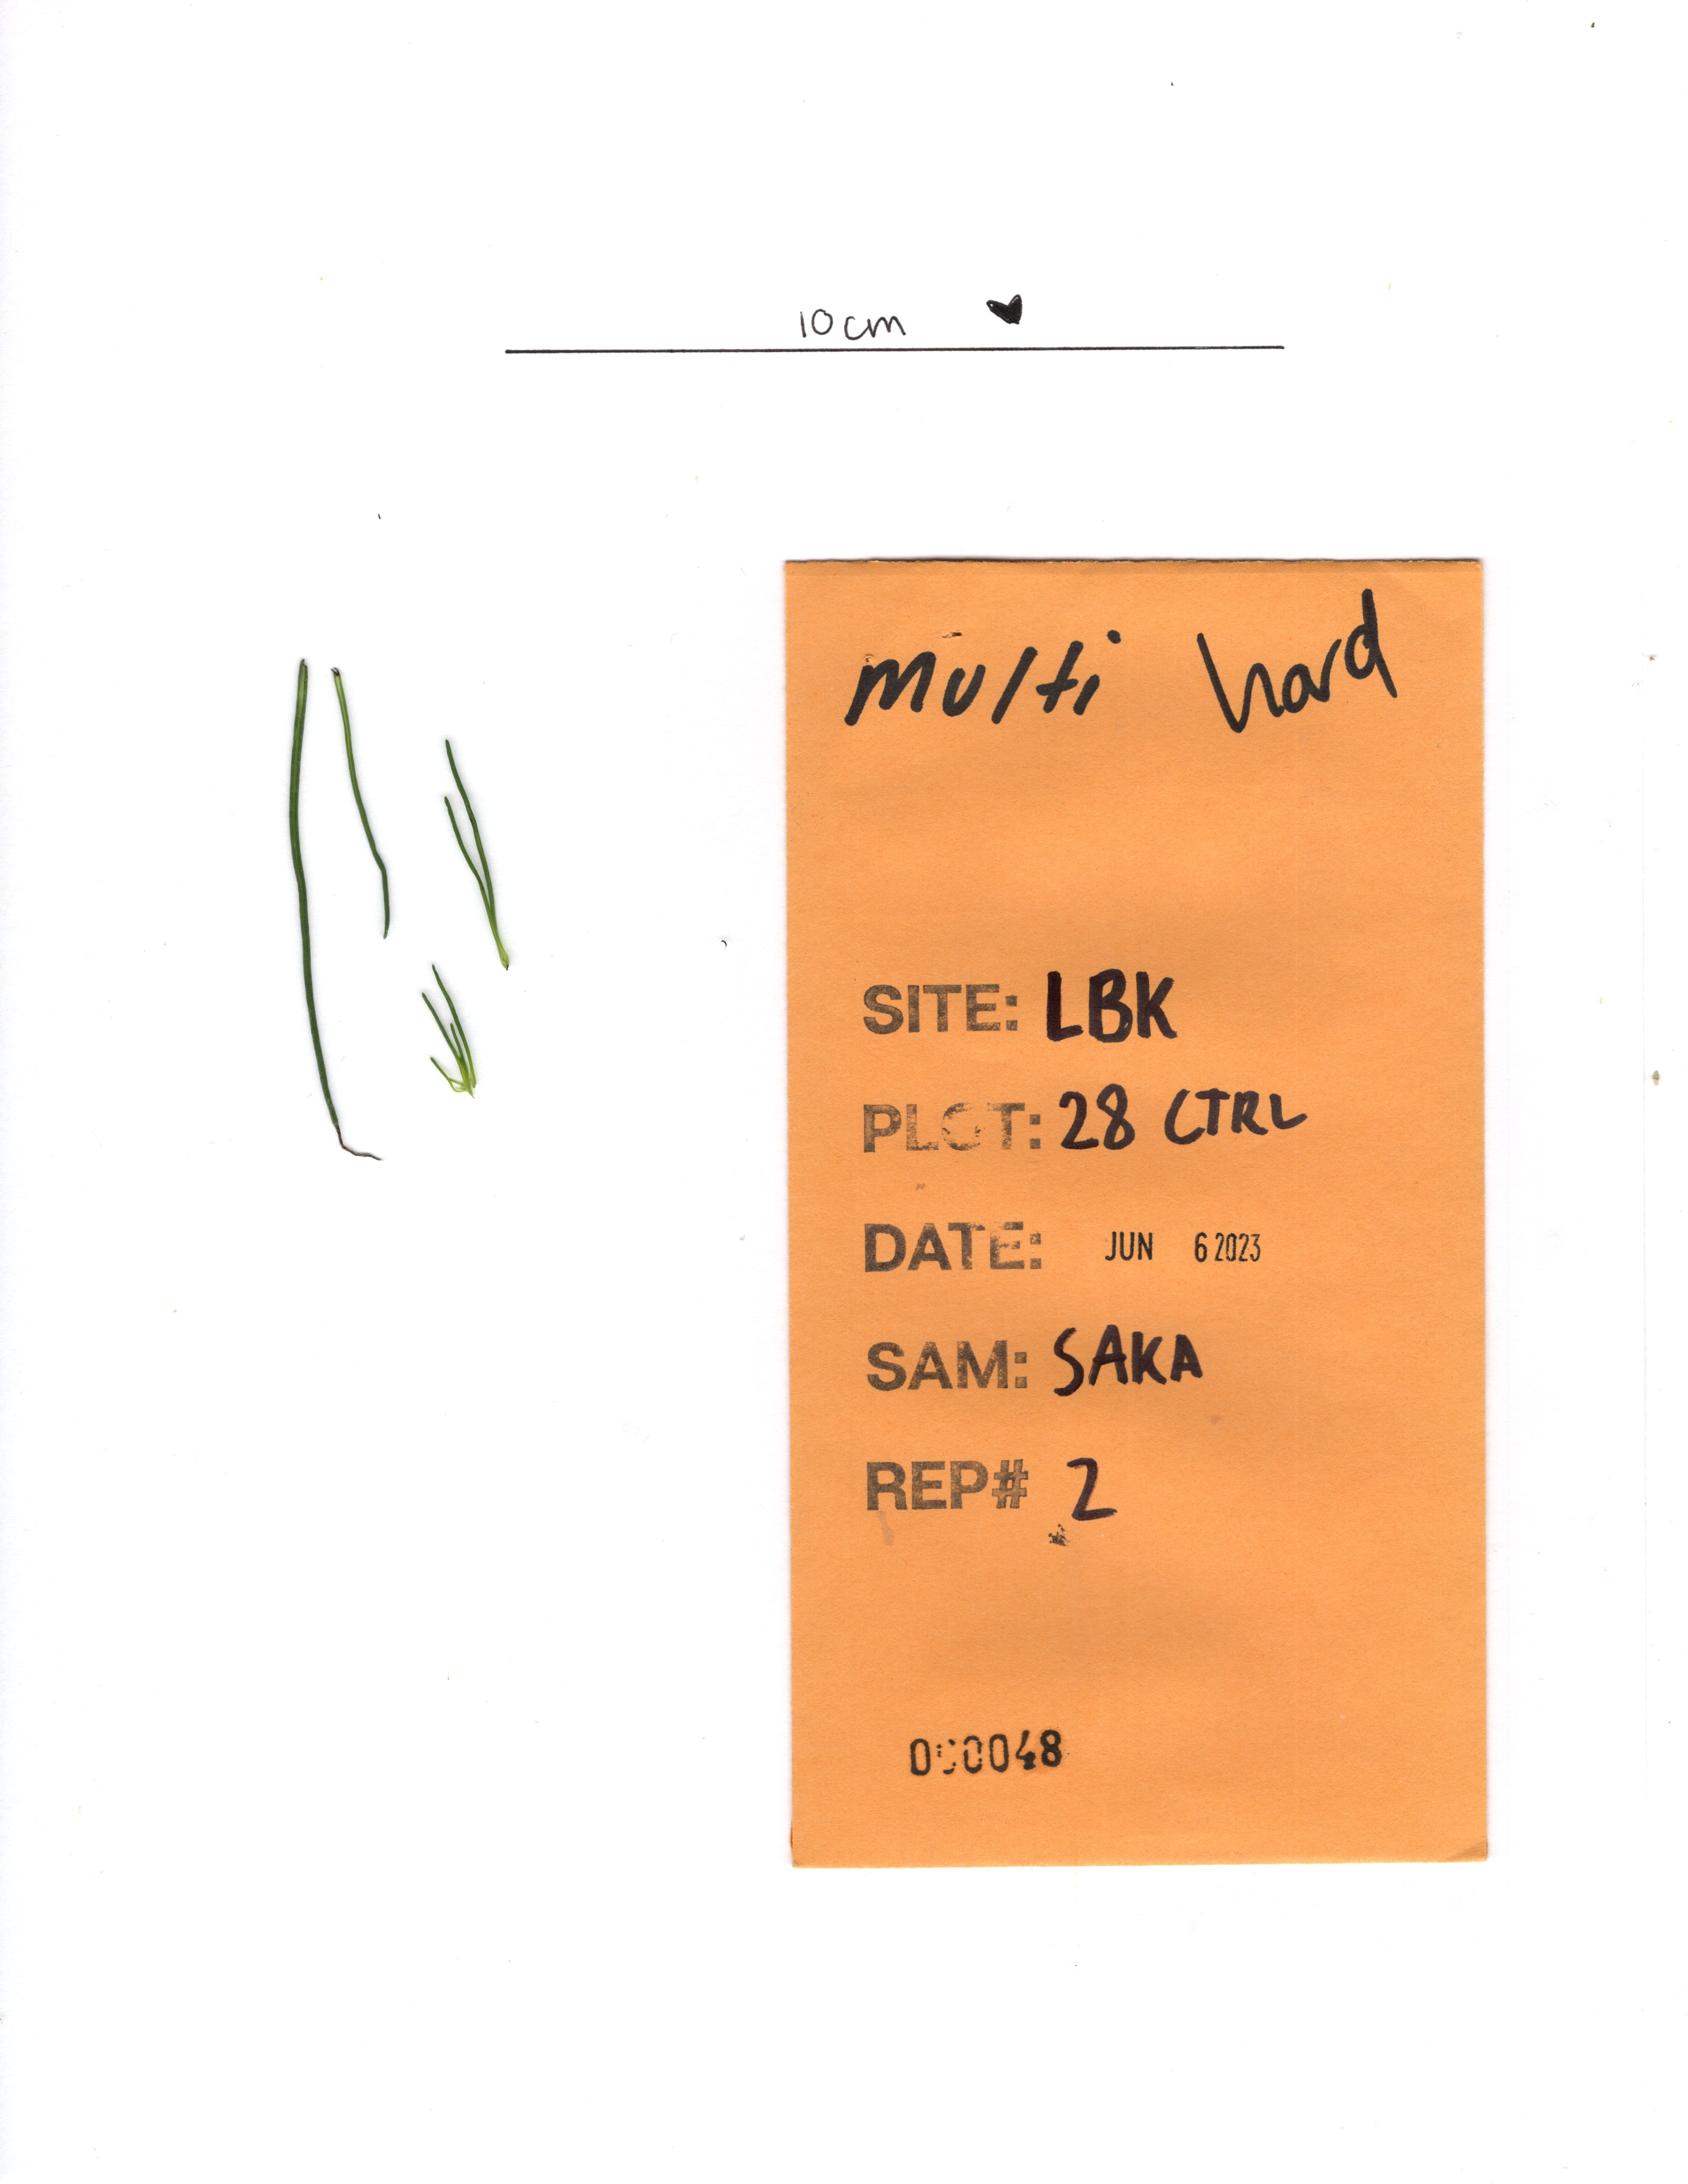 10cm
multi hard
SITE: LBK
PLOT: 28 CTRL
DATE: JUN 6 2023
SAM: SAKA
REP# 2
000048